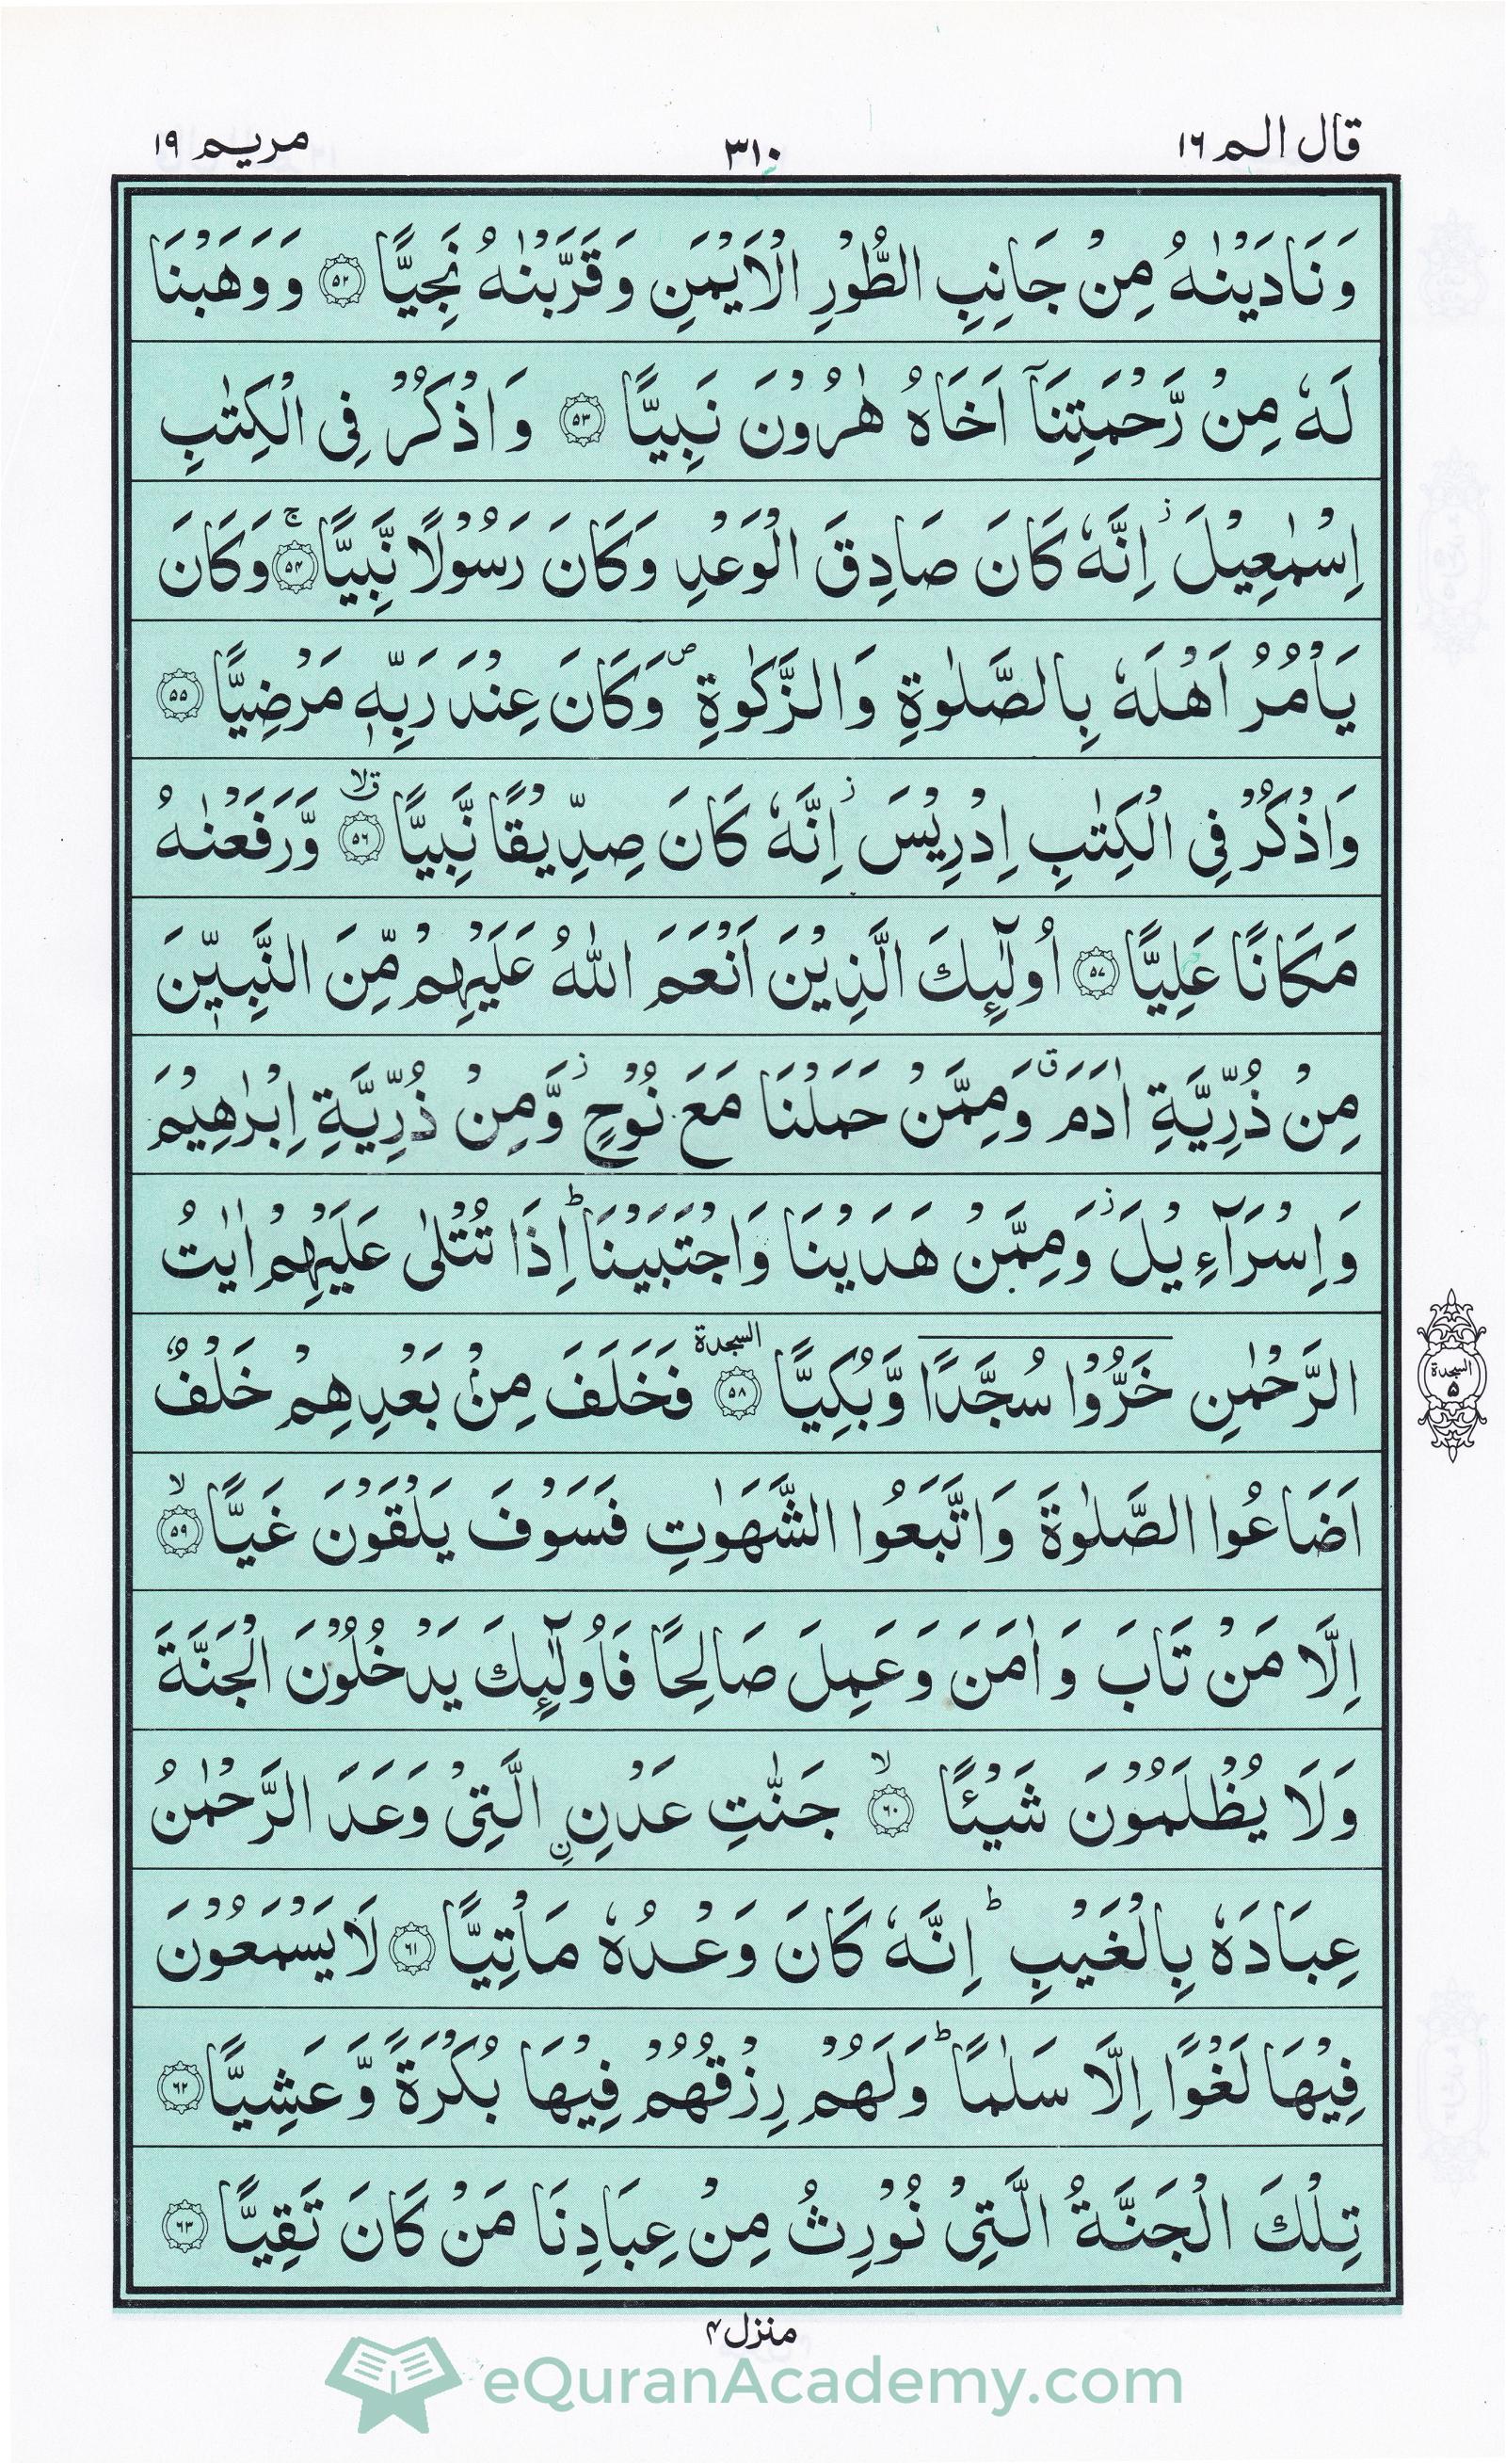 قال الم ١٦ ٣١٠ مريم ١٩
وَنَادَيْنٰهُ مِنْ جَانِبِ الطُّوْرِ الْاَيْمَنِ وَقَرَّبْنٰهُ نَجِيًّا ۝٥٢ وَوَهَبْنَا
لَهٗ مِنْ رَّحْمَتِنَاۤ اَخَاهُ هٰرُوْنَ نَبِيًّا ۝٥٣ وَاذْكُرْ فِى الْكِتٰبِ
اِسْمٰعِيْلَ ۡ اِنَّهٗ كَانَ صَادِقَ الْوَعْدِ وَكَانَ رَسُوْلًا نَّبِيًّا ۚ۝٥٤ وَكَانَ
يَاْمُرُ اَهْلَهٗ بِالصَّلٰوةِ وَالزَّكٰوةِ ۪ وَكَانَ عِنْدَ رَبِّهٖ مَرْضِيًّا ۝٥٥
وَاذْكُرْ فِى الْكِتٰبِ اِدْرِيْسَ ۡ اِنَّهٗ كَانَ صِدِّيْقًا نَّبِيًّا ۙ۝٥٦ وَّرَفَعْنٰهُ
مَكَانًا عَلِيًّا ۝٥٧ اُولٰٓئِكَ الَّذِيْنَ اَنْعَمَ اللّٰهُ عَلَيْهِمْ مِّنَ النَّبِيّٖنَ
مِنْ ذُرِّيَّةِ اٰدَمَ ۗ وَمِمَّنْ حَمَلْنَا مَعَ نُوْحٍ ۡ وَّمِنْ ذُرِّيَّةِ اِبْرٰهِيْمَ
وَاِسْرَآءِيْلَ ۡ وَمِمَّنْ هَدَيْنَا وَاجْتَبَيْنَا ؕ اِذَا تُتْلٰى عَلَيْهِمْ اٰيٰتُ
الرَّحْمٰنِ خَرُّوْا سُجَّدًا وَّبُكِيًّا السجدة ۝٥٨ فَخَلَفَ مِنْۢ بَعْدِهِمْ خَلْفٌ
السجدة ٥
اَضَاعُوا الصَّلٰوةَ وَاتَّبَعُوا الشَّهَوٰتِ فَسَوْفَ يَلْقَوْنَ غَيًّا ۙ۝٥٩
اِلَّا مَنْ تَابَ وَاٰمَنَ وَعَمِلَ صَالِحًا فَاُولٰٓئِكَ يَدْخُلُوْنَ الْجَنَّةَ
وَلَا يُظْلَمُوْنَ شَيْئًا ۙ۝٦٠ جَنّٰتِ عَدْنِ ۨالَّتِىْ وَعَدَ الرَّحْمٰنُ
عِبَادَهٗ بِالْغَيْبِ ؕ اِنَّهٗ كَانَ وَعْدُهٗ مَاْتِيًّا ۝٦١ لَا يَسْمَعُوْنَ
فِيْهَا لَغْوًا اِلَّا سَلٰمًا ؕ وَلَهُمْ رِزْقُهُمْ فِيْهَا بُكْرَةً وَّعَشِيًّا ۝٦٢
تِلْكَ الْجَنَّةُ الَّتِىْ نُوْرِثُ مِنْ عِبَادِنَا مَنْ كَانَ تَقِيًّا ۝٦٣
منزل ٤
eQuranAcademy.com